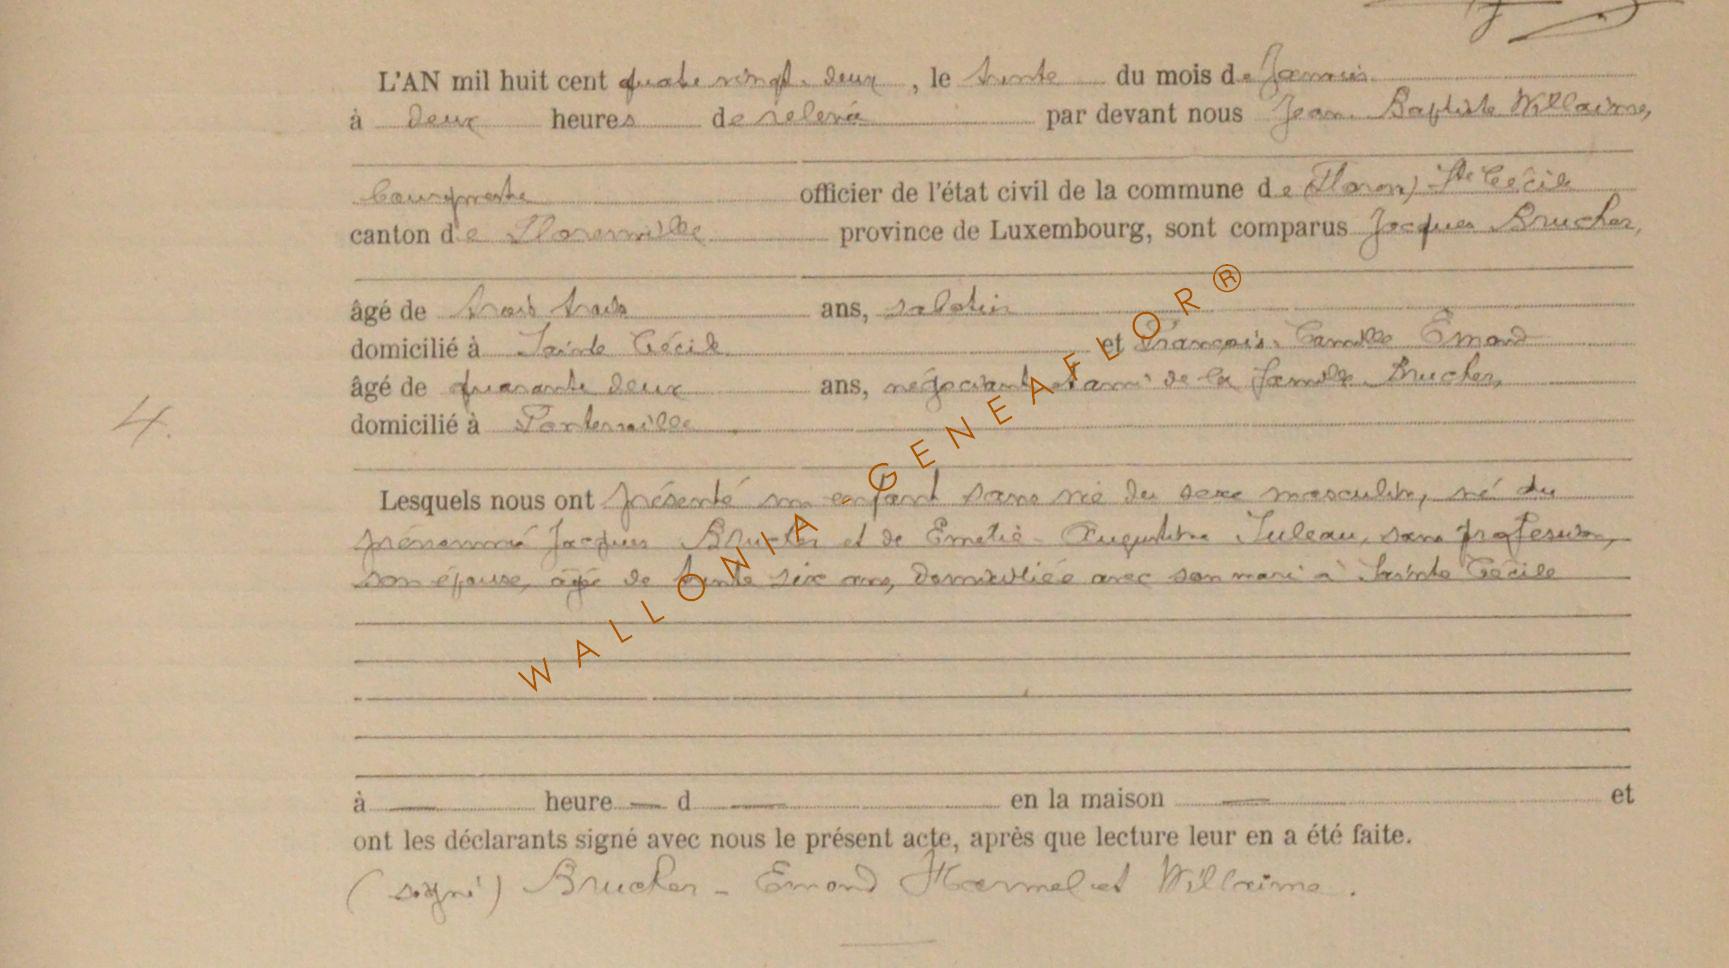 L'AN mil huit cent quatre vingt-deux, le trente du mois de Janvier
à deux heures de relevée par devant nous Jean Baptiste Willaime,
Bourgmestre officier de l'état civil de la commune de Ste Cécile
canton de Florenville province de Luxembourg, sont comparus Jacques Brucher,
âgé de trois ans, sabotier
domicilié à Sainte Cécile et François Camille Emond
âgé de quarante deux ans, négociant et ami de la famille Brucher,
4.
domicilié à
Lesquels nous ont présenté un enfant sans vie du sexe masculin, né du
prénommé Jacques Brucher et de Emelie Augustine Juleau, sans profession,
son épouse, âgée de trente six ans, domiciliée avec son mari à Sainte Cécile
à — heure — d — en la maison — et
ont les déclarants signé avec nous le présent acte, après que lecture leur en a été faite.
(signé) Brucher - Emond Harmel et Willaime.
WALLONIA - GENEAFLOR®